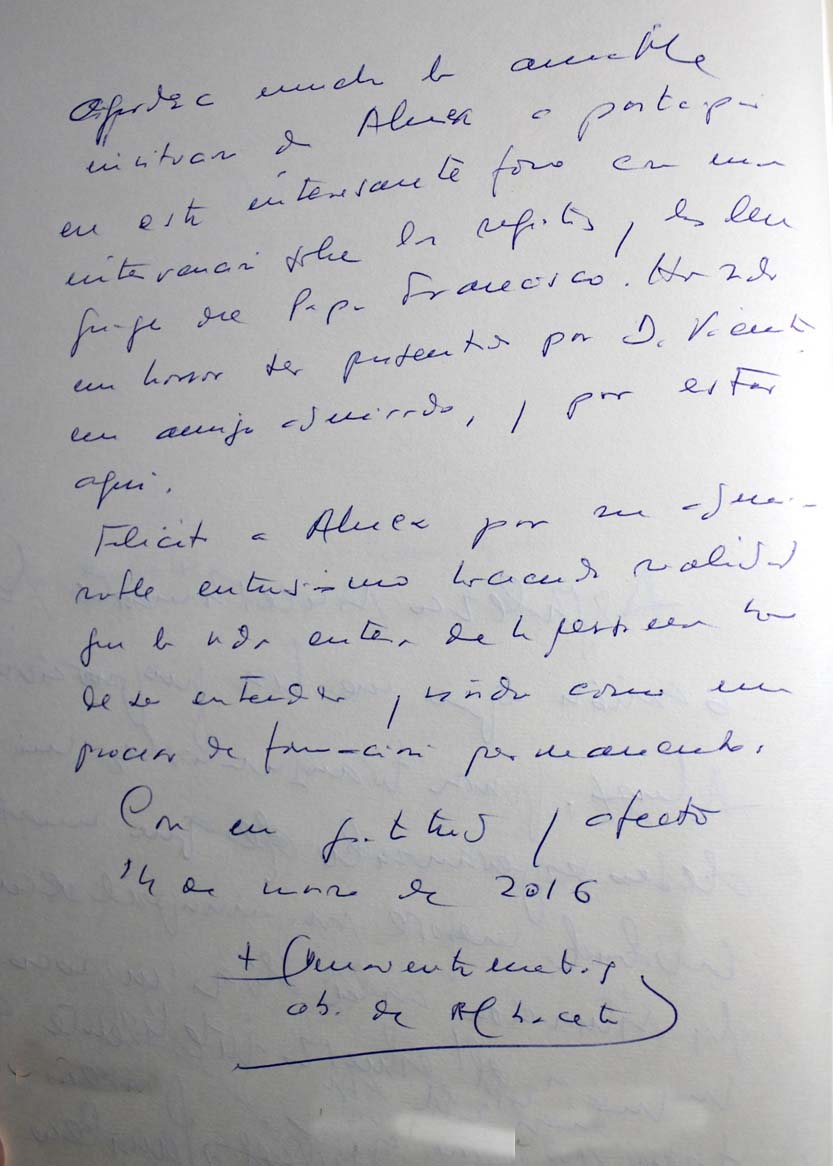 Agradezco mucho la amable
invitación de Almex a participar
en este interesante foro con una
intervención sobre los registros y los len
guajes del Papa Francisco. Ha sido
un honor ser presentado por D. Vicente
un amigo admirado, y por estar
aquí.
Felicito a Almex por su admi-
rable entusiasmo haciendo realidad
que la vida entera de la persona ha
de ser entendida y vivida como un
proceso de formación permanente.
Con mi gratitud y afecto
14 de marzo de 2016
+
ob. de Albacete